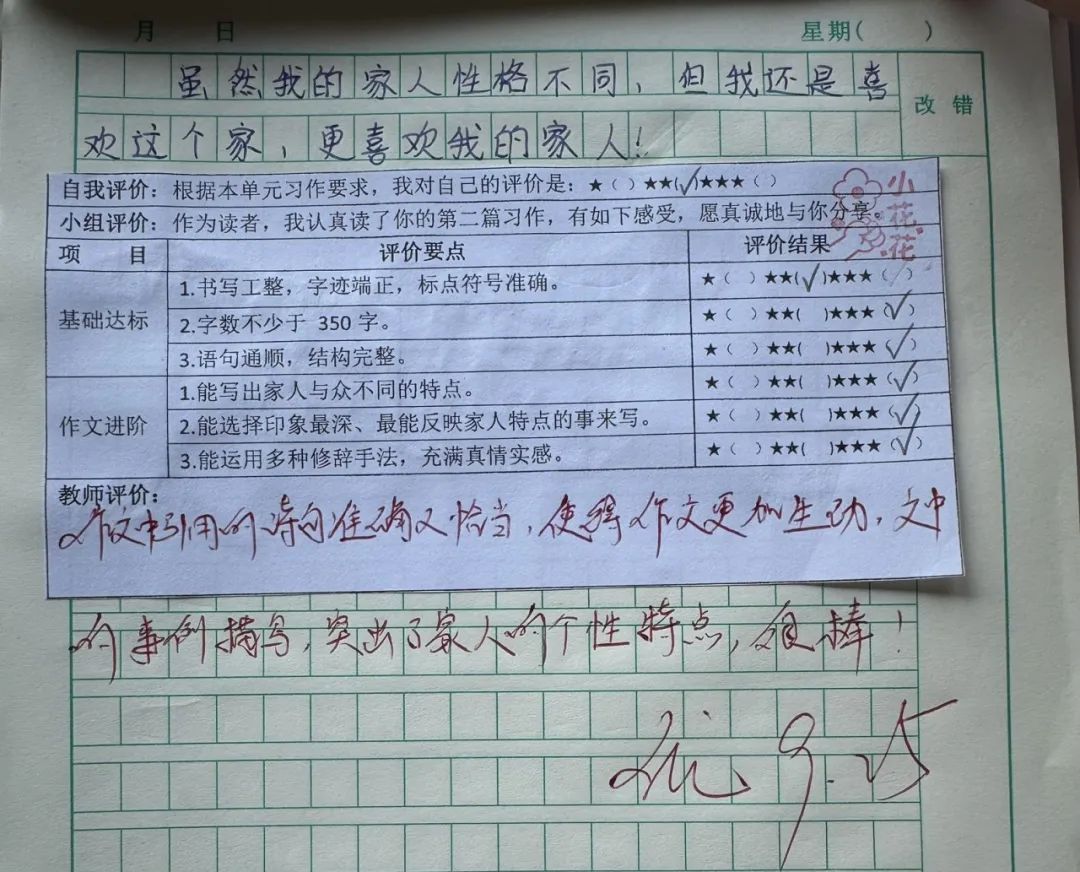 月 日 星期( )
虽然我的家人性格不同，但我还是喜
改 错
欢这个家，更喜欢我的家人！
自我评价：根据本单元习作要求，我对自己的评价是：★（ ）★★(✓)★★★（ ）
小花花
小组评价：作为读者，我认真读了你的第二篇习作，有如下感受，愿真诚地与你分享。
项 目 评价要点 评价结果
基础达标
1.书写工整，字迹端正，标点符号准确。 ★（ ）★★(✓)★★★（ ）
2.字数不少于 350 字。 ★（ ）★★( )★★★（✓）
3.语句通顺，结构完整。 ★（ ）★★( )★★★（✓）
作文进阶
1.能写出家人与众不同的特点。 ★（ ）★★( )★★★（✓）
2.能选择印象最深、最能反映家人特点的事来写。 ★（ ）★★( )★★★（✓）
3.能运用多种修辞手法，充满真情实感。 ★（ ）★★( )★★★（✓）
教师评价：
作文中引用的诗句准确又恰当，使得作文更加生动，文中
的事例描写，突出了家人的个性特点，很棒！
优 9.25